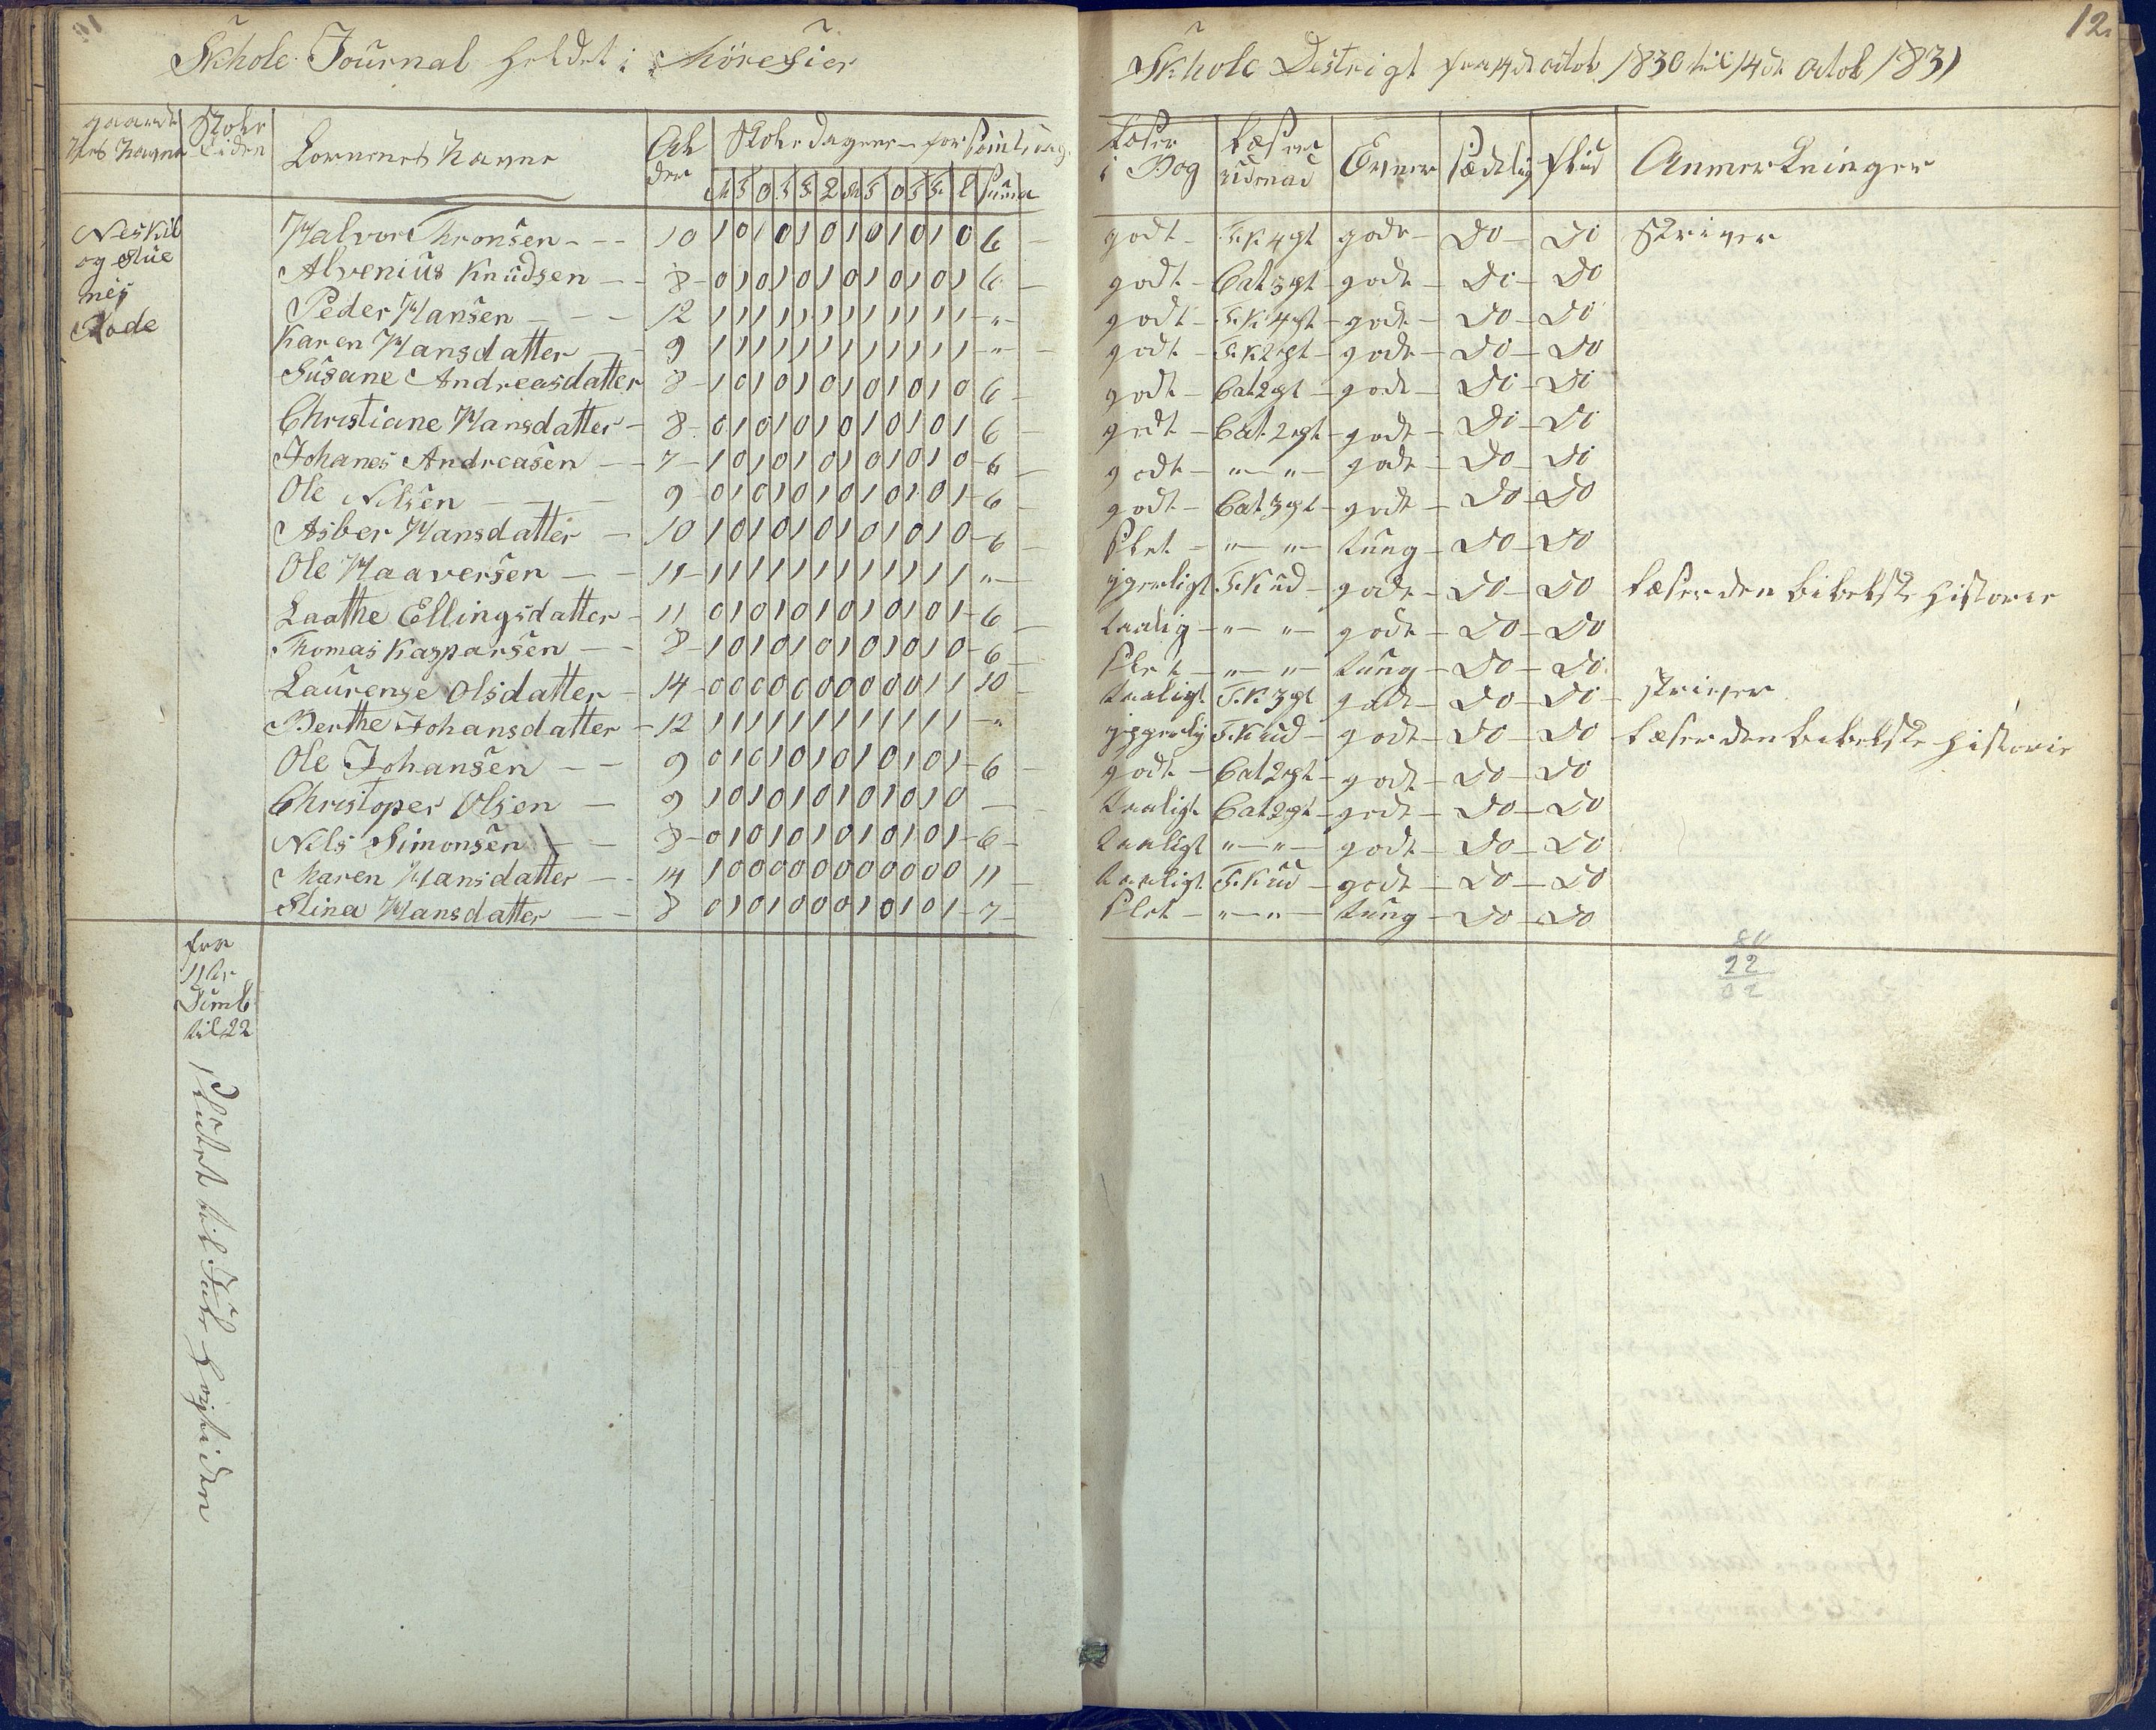 12.
Skhole Journal holdet i Möresier Skhole Destrigt fra 14de octob 1830 til 14de Octob 1831
gaardenes Navne | Skole Tiden | Börnenes Navne | Alderen | Skole Dagene - forsömte Dage | Læser i Bog | Læser udenad | Evner | sædelig | flid | Anmerkninger
M T O T F L M T O T F L Suma
Neskil
og Stue
nes
Rode
Halvor Thronsen - - - 10 1 0 1 0 1 0 1 0 1 0 1 0 6 - godt - F.K 4 pt gode - Do - Do Skriver
Alvenius Knudsen - - 8 - 0 1 0 1 0 1 0 1 0 1 0 1 6 - godt - Cat 3 pt - gode - Do - Do
Peder Hansen - - - 12 1 1 1 1 1 1 1 1 1 1 1 1 - " - godt - F.K 4 pt - gode - Do - Do
Karen Hansdatter - 9 1 1 1 1 1 1 1 1 1 1 1 1 - " - godt - F.K 2 pt - gode - Do - Do
Susane Andreasdatter 8 - 1 0 1 0 1 0 1 0 1 0 1 0 6 - godt - Cat 2 pt - gode - Do - Do
Christiane Hansdatter - 8 - 0 1 0 1 0 1 0 1 0 1 0 1 6 - godt - Cat. 2 pt - gode - Do - Do
Johanes Andreasen - - 7 - 1 0 1 0 1 0 1 0 1 0 1 0 - 6 - godt - " - " - gode - Do - Do
Ole Nilsen - - - 9 - 0 1 0 1 0 1 0 1 0 1 0 1 - 6 - godt - Cat 3 pt - gode - Do - Do
Asber Hansdatter - 10 1 0 1 0 1 0 1 0 1 0 1 0 - 6 - slet - " - " - tung - Do - Do
Ole Haaversen - - 11 - 1 1 1 1 1 1 1 1 1 1 1 1 " - ypperligt F.K ud - gode - Do - Do Læser den bibelske historie
Laathe Ellingsdatter - 11 0 1 0 1 0 1 0 1 0 1 0 1 - 6 - taalig - " - " - gode - Do - Do
Thomas Kasparsen - - 8 - 1 0 1 0 1 0 1 0 1 0 1 0 - 6 - slet - " - " - tung - Do - Do
Laurense Olsdatter - 14 - 0 0 0 0 0 0 0 0 0 0 1 1 10 - taaligt F.K 3 pt gode - Do - Do - skriver
Berthe Johansdatter - 12 1 1 1 1 1 1 1 1 1 1 1 1 - " ypperlig F.K ud - gode - Do - Do Læser den bibelske historie
Ole Johansen - - 9 0 1 0 1 0 1 0 1 0 1 0 1 - 6 - godt - Cat 2 pt - gode - Do - Do
Christoper Olsen - 9 1 0 1 0 1 0 1 0 1 0 1 0 - taaligt Cat 2 pt - gode - Do - Do
Nils Simonsen - - 8 - 0 1 0 1 0 1 0 1 0 1 0 1 - 6 - taaligt " - " - gode - Do - Do
Maren Hansdatter - - 14 1 0 0 0 0 0 0 0 0 0 0 0 11 - taaligt F.K ud - gode - Do - Do
Stina Hansdatter - - 8 0 1 0 1 0 0 0 1 0 1 0 1 - 7 - slet - " - " - tung - Do - Do
22
fra
til 22
Sluttet til Jule höytiden